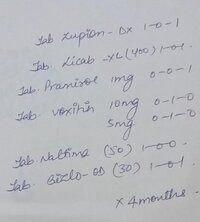 Tab Zupion-Dx 1-0-1
Tab. Licab-XL (400) 1-0-1
Tab. Pramirol 1mg 0-0-1
Tab. Voxihh 10mg 0-1-0
5mg 0-1-0
Tab. Naltima (50) 1-0-0
Tab. Bizlo-OD (30) 1-0-1
x 4months.